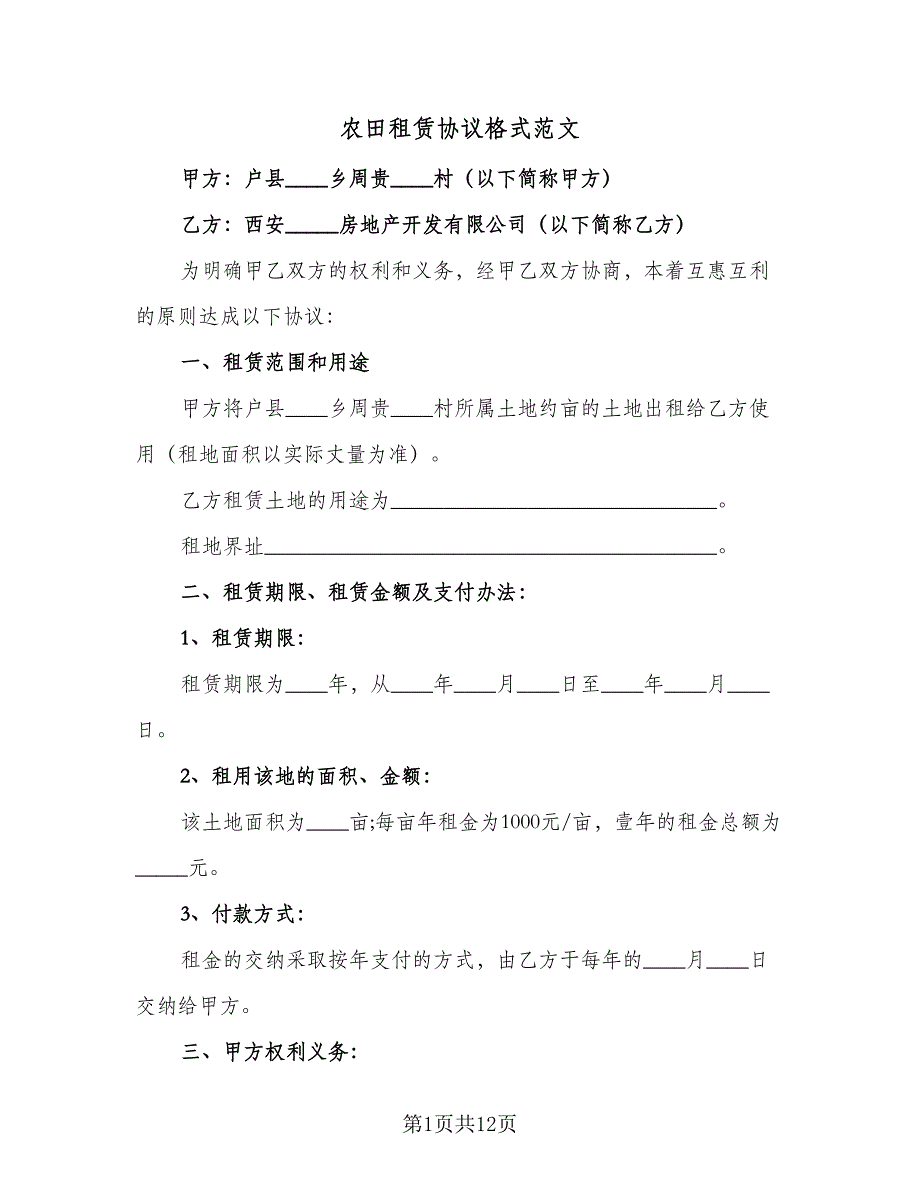 农田租赁协议格式范文
甲方：户县____乡周贵____村（以下简称甲方）
乙方：西安_____房地产开发有限公司（以下简称乙方）
为明确甲乙双方的权利和义务，经甲乙双方协商，本着互惠互利
的原则达成以下协议：
一、租赁范围和用途
甲方将户县____乡周贵____村所属土地约亩的土地出租给乙方使
用（租地面积以实际丈量为准）。
乙方租赁土地的用途为_______________________________。
租地界址___________________________________________。
二、租赁期限、租赁金额及支付办法：
1、租赁期限：
租赁期限为____年，从____年____月____日至____年____月____
日。
2、租用该地的面积、金额：
该土地面积为____亩;每亩年租金为1000元/亩，壹年的租金总额为
_____元。
3、付款方式：
租金的交纳采取按年支付的方式，由乙方于每年的____月____日
交纳给甲方。
三、甲方权利义务：
第1页共12页